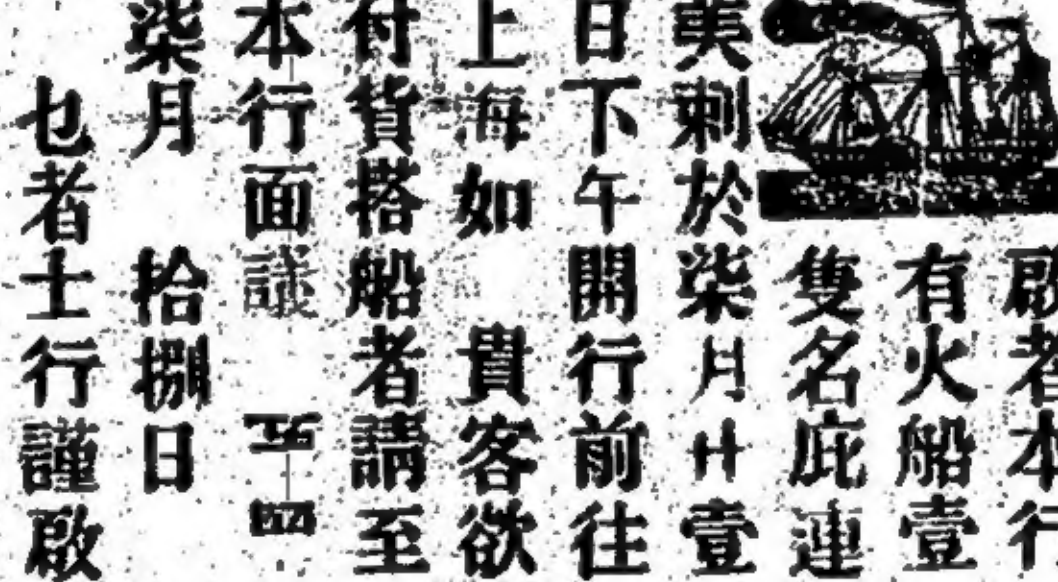 啟者本行
有火船壹
隻名庇連
美剌於柒月廿壹
日下午開行前往
上海如 貴客欲
付貨搭船者請至
本行面議
柒月 拾捌日
乜者士行謹啟